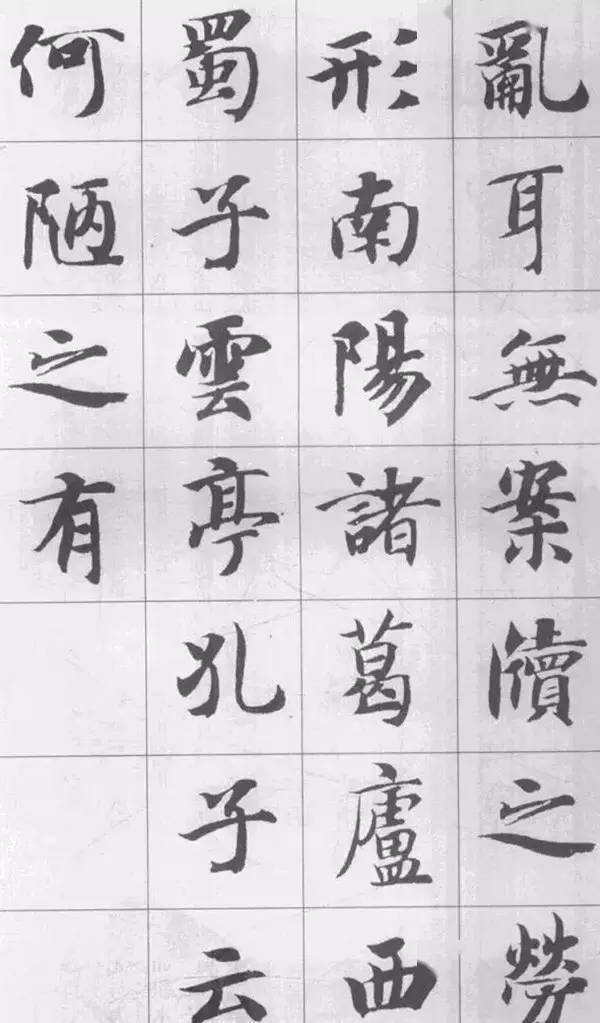 亂耳無案牘之勞
形南陽諸葛廬西
蜀子雲亭孔子云
何陋之有